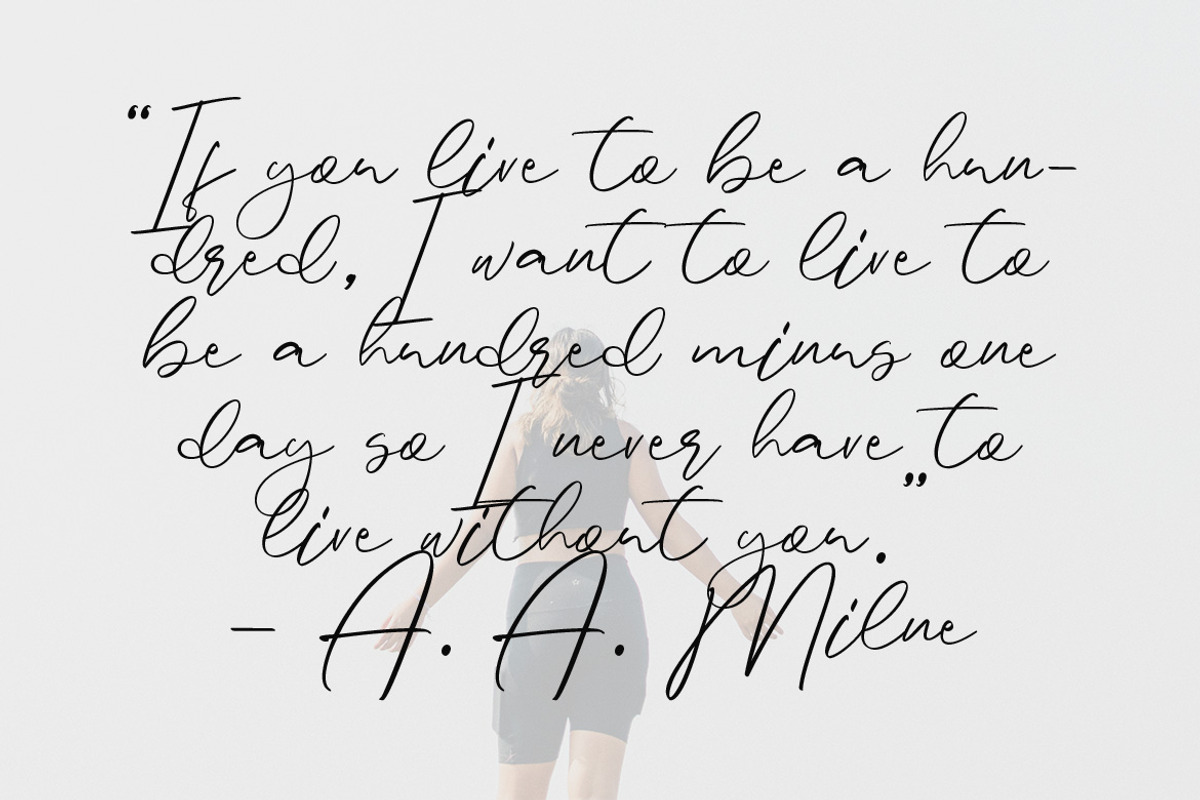 “If you live to be a hun-
dred, I want to live to
be a hundred minus one
day so I never have to
live without you.”
- A. A. Milne